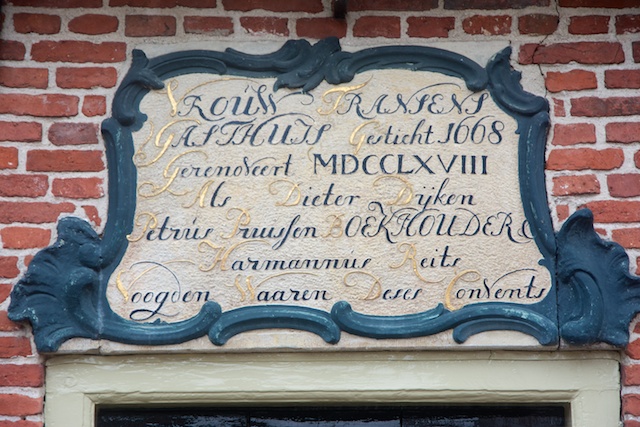 VROÚW FRANSENS
GASTHUIS Gesticht 1668
Gerenoveert MDCCLXVIII
Als Dieter Dijken
Petrús Pruissen BOEKHOUDER &
Harmannús Reits
Voogden Waaren Deses Convents